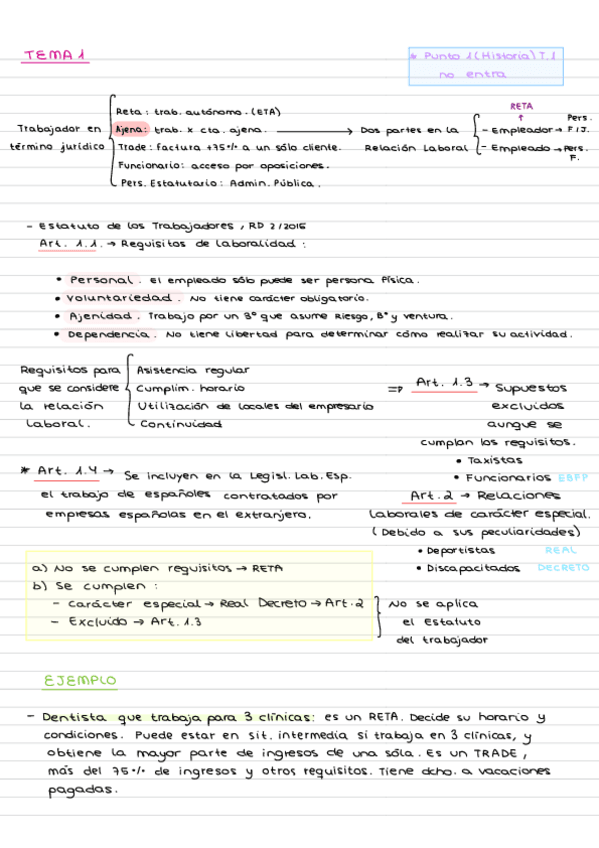 TEMA 1
* Punto 1 (Historia) T.1
no entra
Trabajador en
término jurídico
Reta: trab. autónomo. (ETA)
Ajena: trab. x cta. ajena. → Dos partes en la
Relación Laboral
RETA
↑
- Empleador → Pers. F/J.
- Empleado → Pers. F.
Trade: factura +75% a un sólo cliente.
Funcionario: acceso por oposiciones.
Pers. Estatutario: Admin. Pública.
- Estatuto de los Trabajadores, RD 2/2015
Art. 1.1. → Requisitos de laboralidad:
• Personal. el empleado sólo puede ser persona física.
• Voluntariedad. No tiene carácter obligatorio.
• Ajenidad. Trabajo por un 3º que asume Riesgo, Bº y ventura.
• Dependencia. No tiene libertad para determinar cómo realizar su actividad.
Requisitos para
que se considere
la relación
laboral.
Asistencia regular
Cumplim. horario
Utilización de locales del empresario
Continuidad
⇒ Art. 1.3 → Supuestos
excluidos
aunque se
cumplan los requisitos.
• Taxistas
• Funcionarios EBFP
* Art. 1.4 → Se incluyen en la Legisl. Lab. Esp.
el trabajo de españoles contratados por
empresas españolas en el extranjero.
Art. 2 → Relaciones
laborales de carácter especial.
(Debido a sus peculiaridades)
• Deportistas REAL
• Discapacitados DECRETO
a) No se cumplen requisitos → RETA
b) Se cumplen:
- Carácter especial → Real Decreto → Art. 2
- Excluido → Art. 1.3
No se aplica
el Estatuto
del trabajador
EJEMPLO
- Dentista que trabaja para 3 clínicas: es un RETA. Decide su horario y
condiciones. Puede estar en sit. intermedia si trabaja en 3 clínicas, y
obtiene la mayor parte de ingresos de una sóla. Es un TRADE,
más del 75% de ingresos y otros requisitos. Tiene dcho. a vacaciones
pagadas.